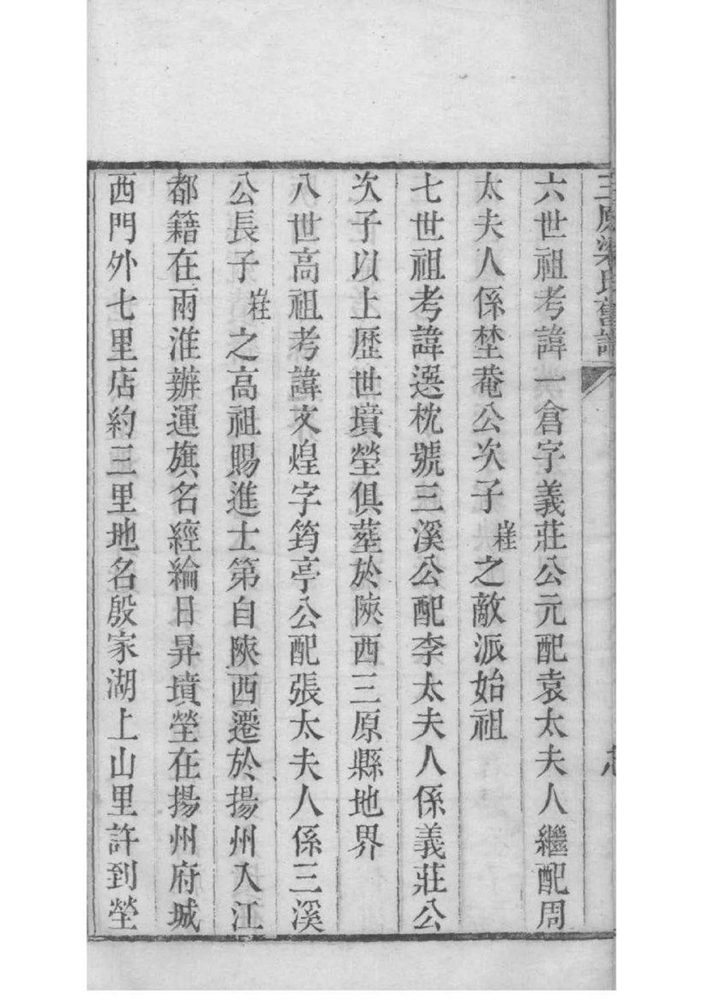 三原梁氏舊譜
六世祖考諱一倉字義莊公元配袁太夫人繼配周
太夫人係埜菴公次子㟵之敵派始祖
七世祖考諱選枕號三溪公配李太夫人係義莊公
次子以上歷世墳塋俱塟於陝西三原縣地界
八世高祖考諱文煌字筠亭公配張太夫人係三溪
公長子㟵之高祖賜進士第自陝西遷於揚州入江
都籍在兩淮辦運旗名經綸日昇墳塋在揚州府城
西門外七里店約三里地名殷家湖上山里許到塋